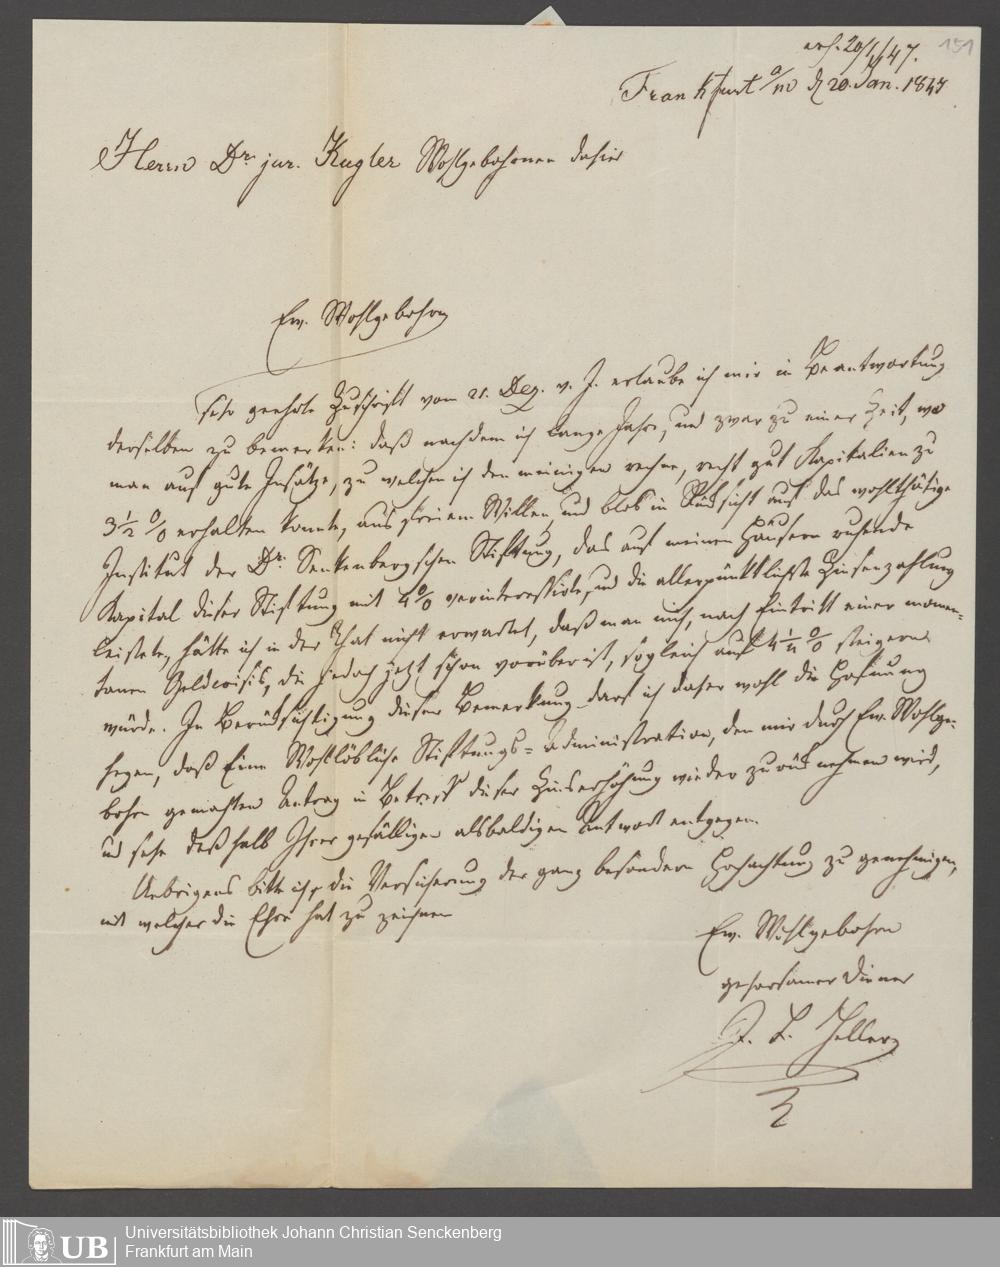 erh. 20/1/47.
151
Frankfurt a/m d 20. Jan. 1847
Herrn Dr. jur. Kugler Wohlgebohrnen dahier
Ew. Wohlgebohrn
sehr geehrte Zuschrift vom 21. Dez. v. J. erlaube ich mir in Beantwortung
derselben zu bemerken: daß nachdem ich lange Jahre, und zwar zu einer Zeit, wo
man auf gute Insätze, zu welchen ich den meinigen rechne, recht gut Kapitalien zu
3 1/2 % erhalten konnte, aus freiem Willen und blos in Rücksicht auf das wohlthätige
Institut der Dr. Senkenbergschen Stiftung, das auf meinen Häusern ruhende
Kapital dieser Stiftung mit 4 % verinteressirte, und die allerpünktlichste Zinsenzahlung
leistete, hätte ich in der That nicht erwartet, daß man mich, nach Eintritt einer momen-
tanen Geldcrisis, die jedoch jetzt schon vorüber ist, sogleich auf 4 1/4 % steigern
würde. In Berücksichtigung dieser Bemerkung darf ich daher wohl die Hoffnung
hegen, daß Eine Wohllöbliche Stiftungs-Administration, den mir durch Ew. Wohlge-
bohrn gemachten Antrag in Betreff dieser Zinserhöhung wieder zurück nehmen wird,
und sehe deßhalb Ihrer gefälligen alsbaldigen Antwort entgegen.
Uebrigens bitte ich, die Versicherung der ganz besondern Hochachtung zu genehmigen,
mit welcher die Ehre hat zu zeichnen
Ew. Wohlgebohrn
gehorsamer Diener
J. L. Heller
UB
Universitätsbibliothek Johann Christian Senckenberg
Frankfurt am Main